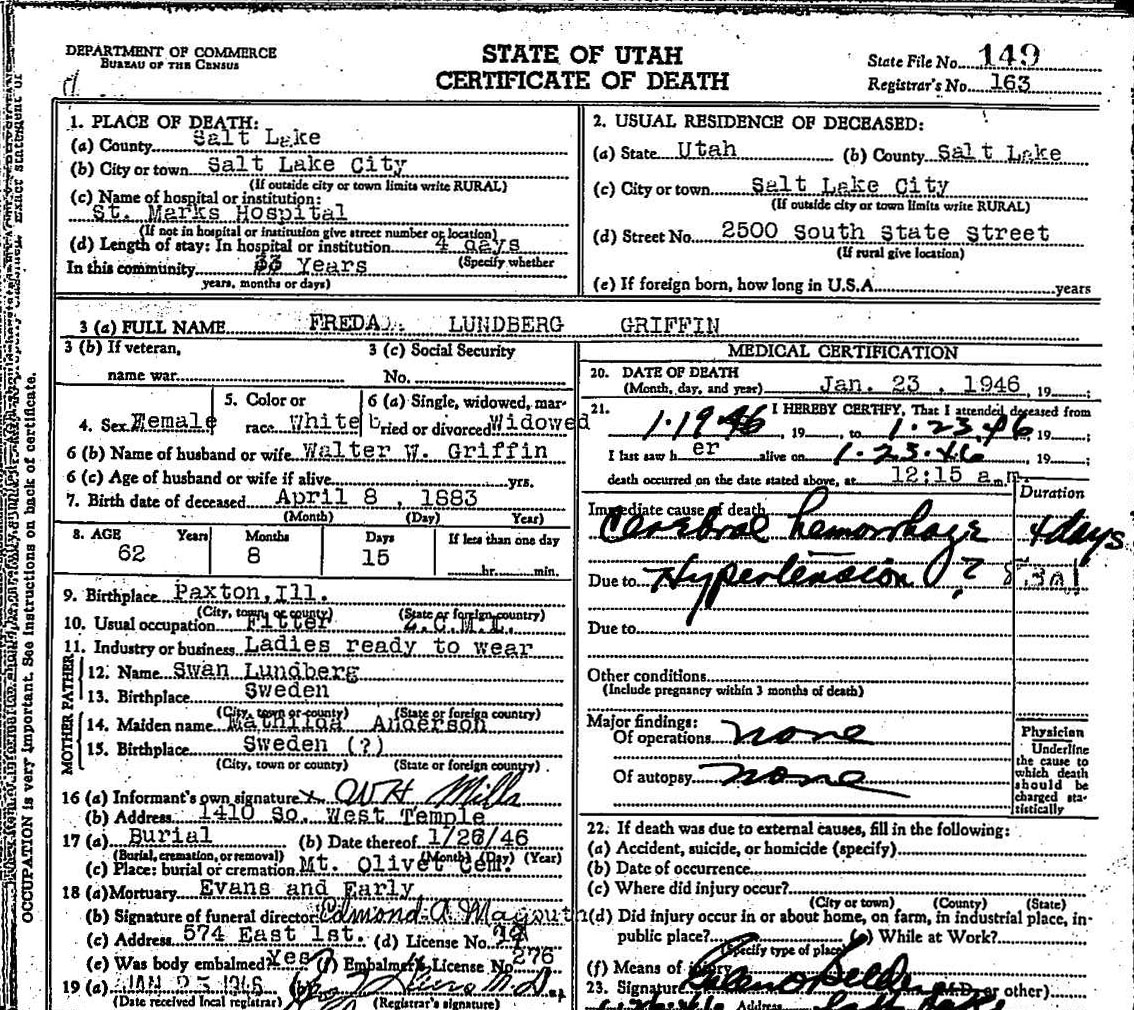 DEPARTMENT OF COMMERCE
BUREAU OF THE CENSUS
STATE OF UTAH
CERTIFICATE OF DEATH
State File No. 149
Registrar's No. 163
1. PLACE OF DEATH:
(a) County Salt Lake
(b) City or town Salt Lake City
(If outside city or town limits write RURAL)
(c) Name of hospital or institution:
St. Marks Hospital
(If not in hospital or institution give street number or location)
(d) Length of stay: In hospital or institution 4 days
(Specify whether
In this community Years
years, months or days)
2. USUAL RESIDENCE OF DECEASED:
(a) State Utah (b) County Salt Lake
(c) City or town Salt Lake City
(If outside city or town limits write RURAL)
(d) Street No. 2500 South State Street
(If rural give location)
(e) If foreign born, how long in U.S.A. years
3 (a) FULL NAME FREDA LUNDBERG GRIFFIN
3 (b) If veteran,
name war
3 (c) Social Security
No.
4. Sex Female
5. Color or
race White
6 (a) Single, widowed, mar-
ried or divorced Widowed
6 (b) Name of husband or wife Walter W. Griffin
6 (c) Age of husband or wife if alive yrs.
7. Birth date of deceased April 8, 1883
(Month) (Day) Year)
8. AGE Years Months Days If less than one day
62 8 15 hr. min.
9. Birthplace Paxton, Ill.
(City, town or county) (State or foreign country)
10. Usual occupation Fitter Z.C.M.I.
11. Industry or business Ladies ready to wear
FATHER
12. Name Swan Lundberg
13. Birthplace Sweden
(City, town or county) (State or foreign country)
MOTHER
14. Maiden name Mathilda Anderson
15. Birthplace Sweden (?)
(City, town or county) (State or foreign country)
16 (a) Informant's own signature x WH Mills
(b) Address 1410 So. West Temple
17 (a) Burial (b) Date thereof 1/26/46
(Burial, cremation, or removal) (Month) (Day) (Year)
(c) Place: burial or cremation Mt. Olivet Cem.
18 (a) Mortuary Evans and Early
(b) Signature of funeral director Edmond A.
(c) Address 574 East 1st. (d) License No.
(e) Was body embalmed? Yes (f) Embalmer's License No. 276
19 (a) JAN 25 1946 (b)
(Date received local registrar) (Registrar's signature)
MEDICAL CERTIFICATION
20. DATE OF DEATH
(Month, day, and year) Jan. 23, 1946, 19
21. I HEREBY CERTIFY, That I attended deceased from
1-19-46, 19, to 1-23-46 19;
I last saw her alive on 1-23-46, 19;
death occurred on the date stated above, at 12:15 a.m.
Duration
Immediate cause of death
Cerebral hemorrhage 4 days
Due to Hypertension ?
Due to
Other conditions
(Include pregnancy within 3 months of death)
Major findings:
Of operations none
Of autopsy none
Physician
Underline
the cause to
which death
should be
charged sta-
tistically
22. If death was due to external causes, fill in the following:
(a) Accident, suicide, or homicide (specify)
(b) Date of occurrence
(c) Where did injury occur?
(City or town) (County) (State)
(d) Did injury occur in or about home, on farm, in industrial place, in-
public place? (e) While at Work?
(Specify type of place)
(f) Means of injury
23. Signature (M.D. or other)
Address
OCCUPATION is very important. See instructions on back of certificate.